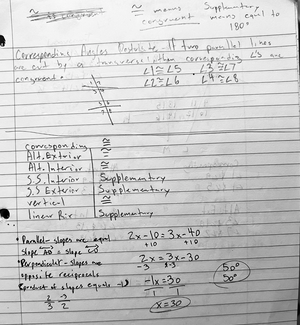 ≅ means congruent
Supplementary means equal to 180°
Corresponding Angles Postulate - If two parallel lines
are cut by a transversal then corresponding ∠s are
congruent.
∠1≅∠5 ∠3≅∠7
∠2≅∠6 ∠4≅∠8
corresponding ≅
Alt. Exterior ≅
Alt. Interior ≅
S.S. Interior Supplementary
S.S. Exterior Supplementary
vertical ≅
linear Pair Supplementary
• Parallel - slopes are equal
slope AB = slope CD
• Perpendicular - slopes are
opposite reciprocals
product of slopes equals -1
2/3 -3/2
2x-10=3x-40
+10 +10
2x=3x-30
-3 -3
-1x=30
x=30
50°
50°